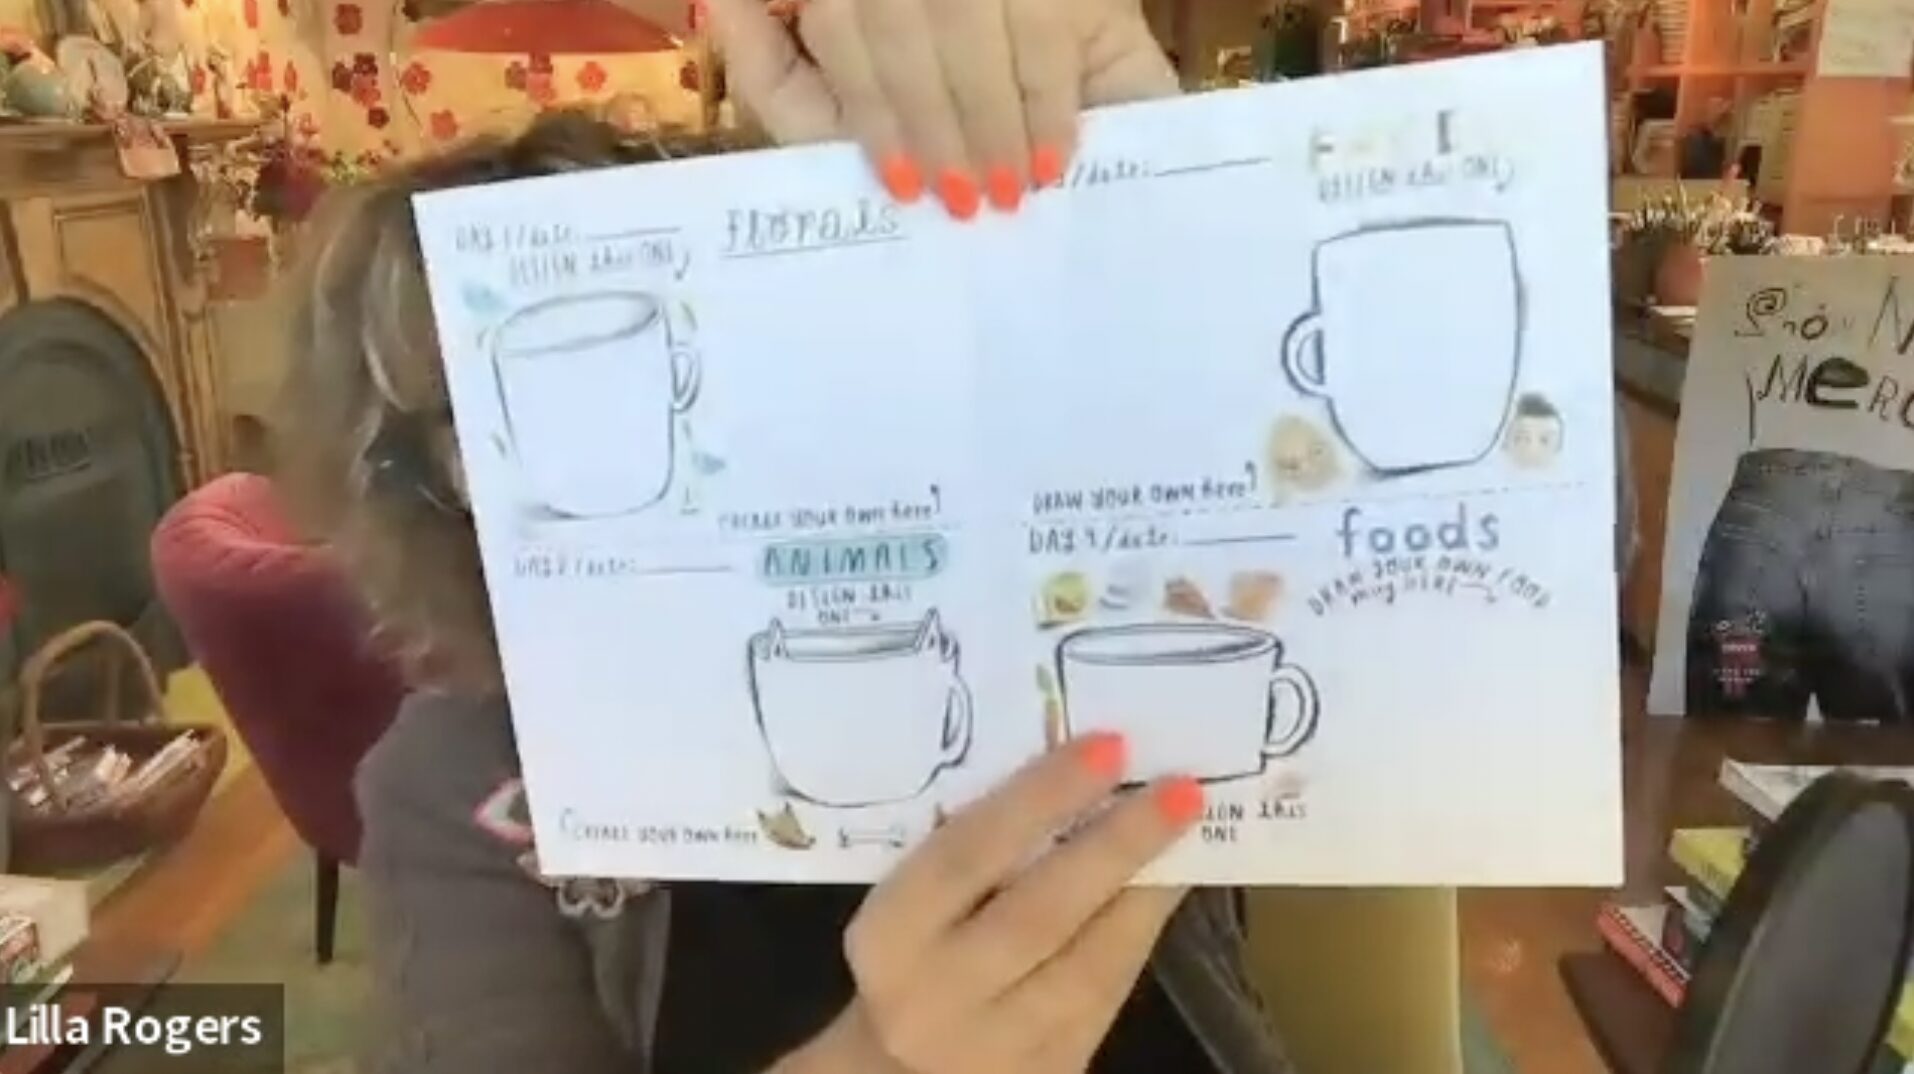 DAY 1/date:
DESIGN this ONE
florals
CREATE YOUR OWN here
/date:
DESIGN this ONE
DRAW YOUR OWN here
DAY 2/date:
ANIMALS
DESIGN this
ONE
CREATE YOUR OWN here
DAY 4/date:
foods
DRAW YOUR OWN FOOD
mug HERE
this
ONE
Lilla Rogers